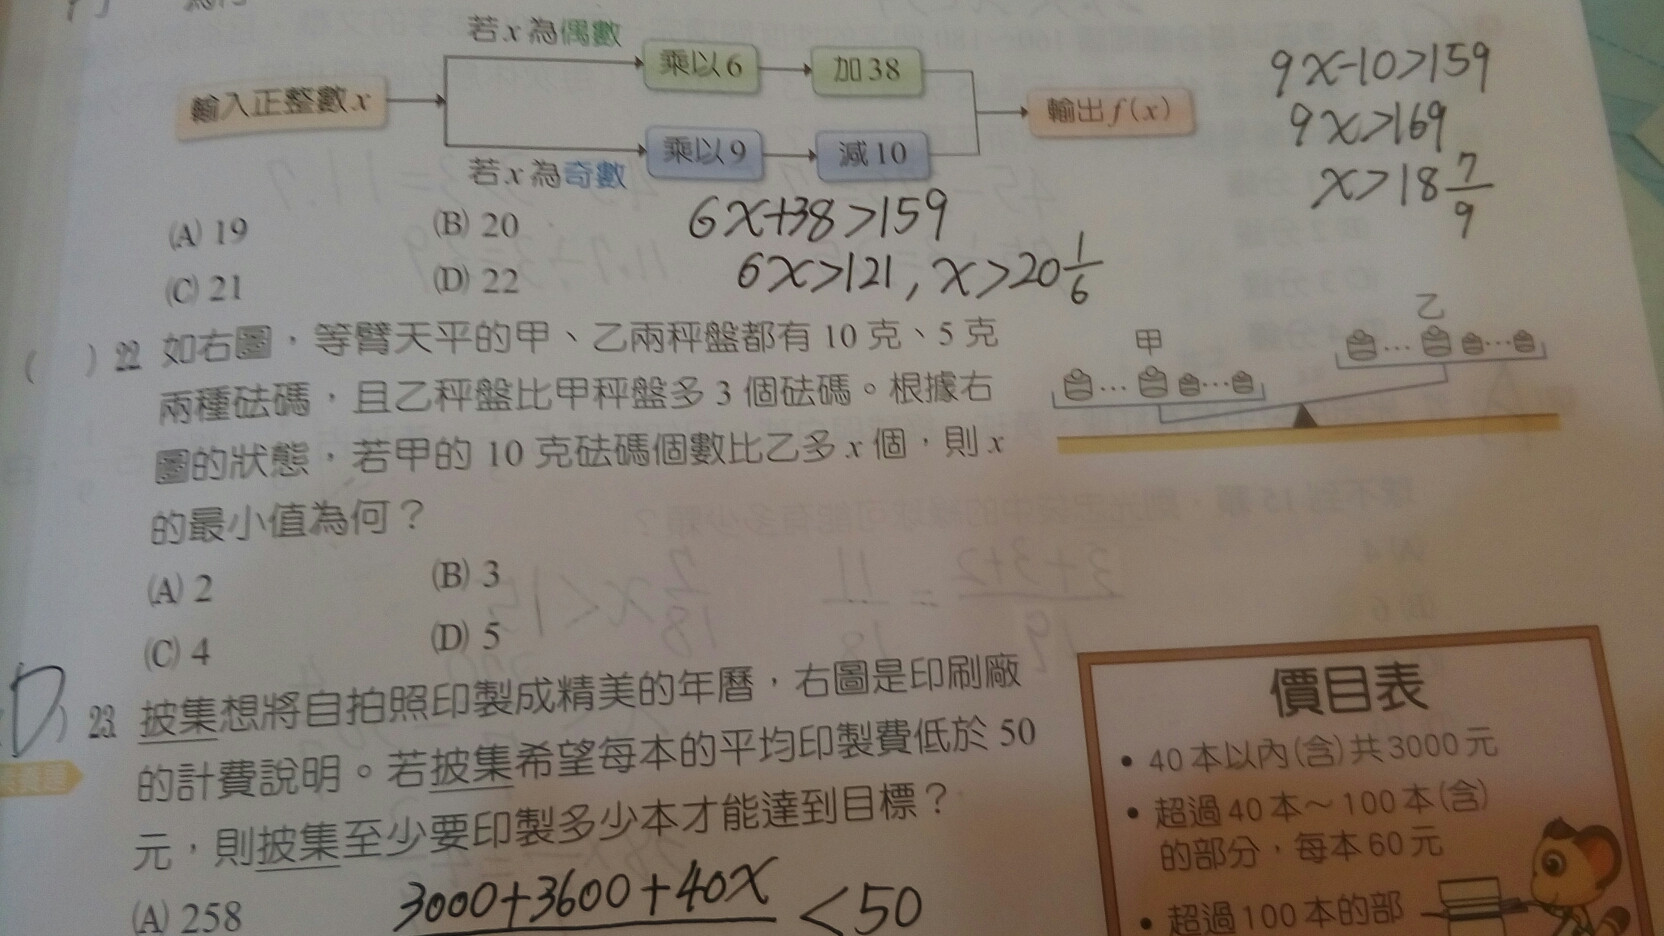 若 x 為偶數
乘以 6
加 38
輸入正整數 x
輸出 f(x)
乘以 9
減 10
若 x 為奇數
9x-10>159
9x>169
x>18 7/9
(A) 19
(B) 20
6x+38>159
(C) 21
(D) 22
6x>121, x>20 1/6
( ) 22 如右圖，等臂天平的甲、乙兩秤盤都有 10 克、5 克
兩種砝碼，且乙秤盤比甲秤盤多 3 個砝碼。根據右
圖的狀態，若甲的 10 克砝碼個數比乙多 x 個，則 x
的最小值為何？
甲
乙
(A) 2
(B) 3
(C) 4
(D) 5
(D) 23 披集想將自拍照印製成精美的年曆，右圖是印刷廠
的計費說明。若披集希望每本的平均印製費低於 50
元，則披集至少要印製多少本才能達到目標？
(A) 258
3000+3600+40x <50
價目表
• 40 本以內(含)共 3000 元
• 超過 40 本～100 本(含)
的部分，每本 60 元
• 超過 100 本的部